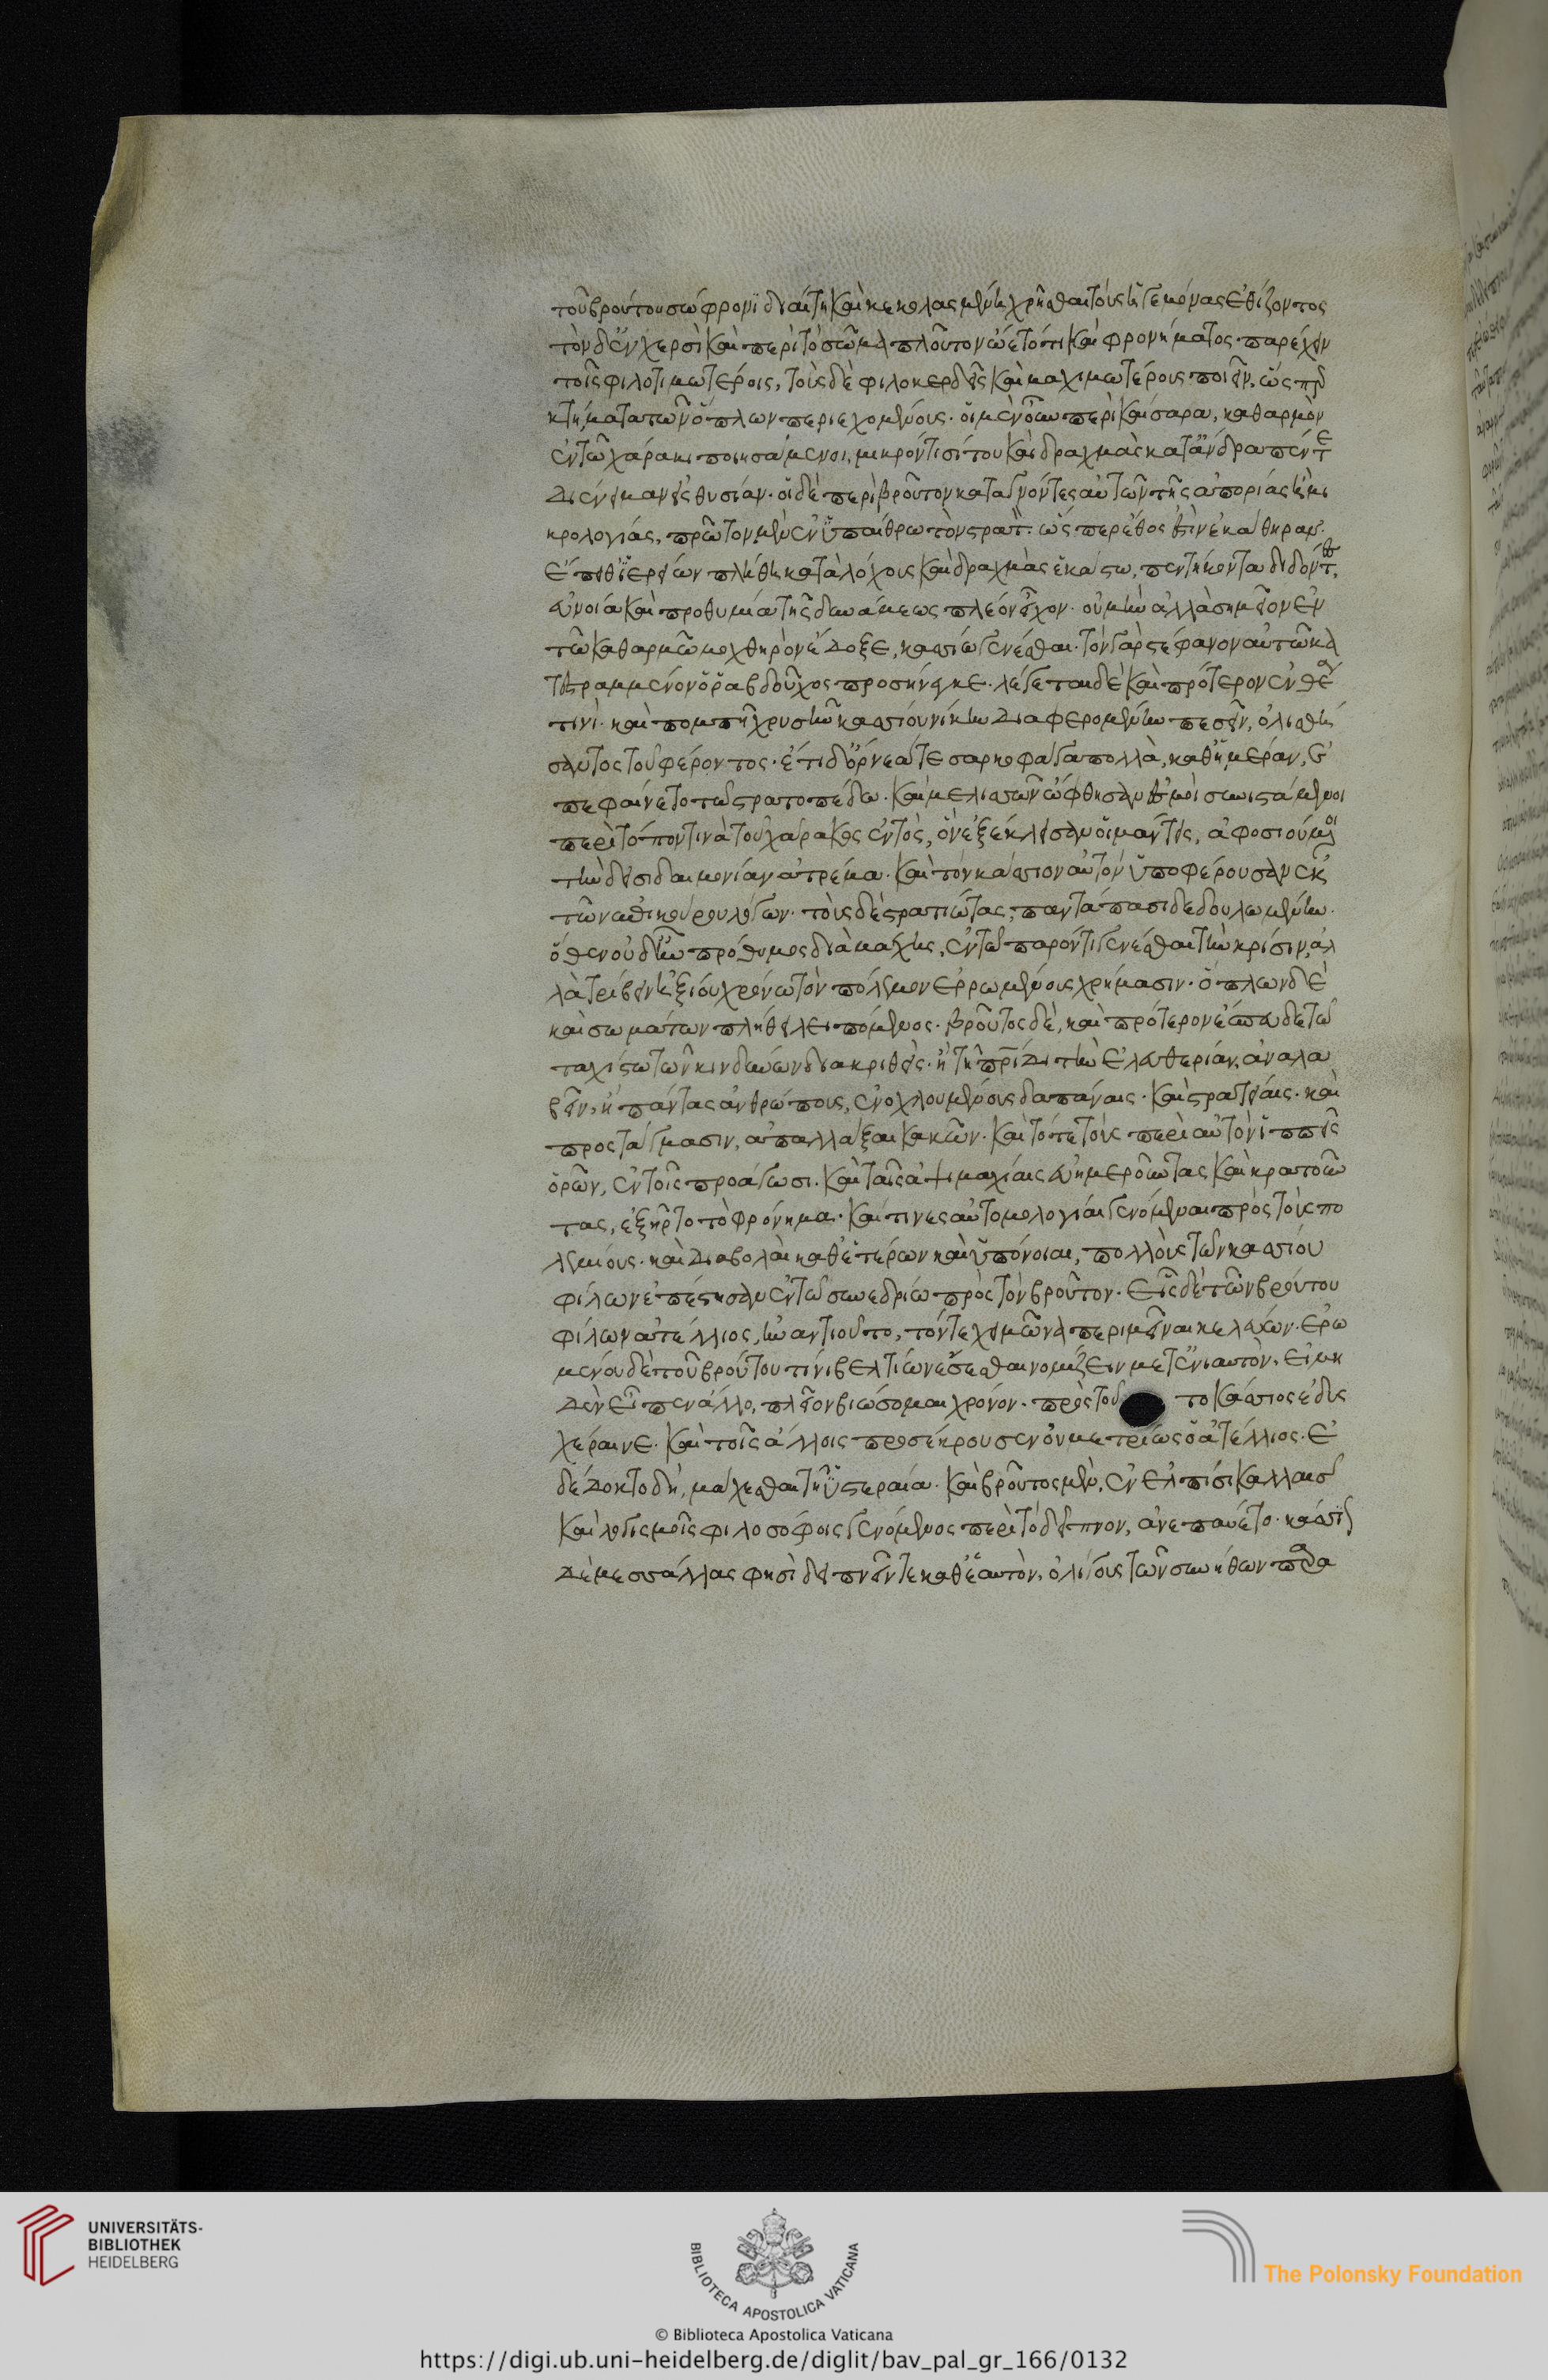 τοῦ βρούτου σώφρονϊ διαίτη καὶ κεκολασμένη χρῆσθαι τοὺς ἡγεμόνας ἐθίζοντος
τὸν δ' ἐν χερσὶ καὶ περὶ τὸ σῶμα πλοῦτον ὤετό τι καὶ φρονήματος παρέχειν
τοῖς φιλοτιμωτέροις, τοὺς δὲ φιλοκερδεῖς καὶ μαχιμωτέρους ποιεῖν, ὥσπερ
κτήματα τῶν ὅπλων περιεχομένους. οἱ μὲν οὖν περὶ καίσαρα, καθαρμὸν
ἐν τῶ χάρακι ποιησάμενοι, μικρόν τι σίτου καὶ δραχμὰς κατ' ἄνδρα πέντε
διένειμαν εἰς θυσίαν. οἱ δὲ περὶ βροῦτον καταγνόντες αὐτῶν τῆς ἀπορίας ἢ μι
κρολογίας, πρῶτον μὲν ἐν ὑπαίθρω τὸν στρατ. ὥσπερ ἔθος ἐστὶν ἐκάθηραν.
ἔπειθ' ἱερείων πλήθη κατὰ λόχους καὶ δραχμὰς ἑκάστω, πεντήκοντα διδόντες,
εὐνοία καὶ προθυμία τῆς δυνάμεως πλέον εἶχον. οὐ μὴν ἀλλὰ σημεῖον ἐν
τῶ καθαρμῶ μοχθηρὸν ἔδοξε, κασσίω γενέσθαι. τὸν γὰρ στέφανον αὐτῶ κα
τεστραμμένον ὁ ῥαβδοῦχος προσήνεγκε. λέγεται δὲ καὶ πρότερον ἐν θέα
τινὶ. καὶ πομπῆ χρυσῆν κασσίου νίκην διαφερομένην πεσεῖν, ὀλισθή
σαντος τοῦ φέροντος. ἔτι δ' ὄρνεά τε σαρκοφάγα πολλὰ, καθ' ἡμέραν, ἐ
πεφαίνετο τῶ στρατοπέδω. καὶ μελισσῶν ὤφθησαν ἑσμοὶ συνιστάμενοι
περὶ τόπον τινὰ τοῦ χάρακος ἐντὸς, ὃν ἐξέκλεισαν οἱ μάντεις, ἀφοσιούμενοι
τὴν δεισιδαιμονίαν ἀτρέμα. καὶ τὸν κάσσιον αὐτὸν ὑποφέρουσαν ἐκ
τῶν ἐπικούρου λόγων. τοὺς δὲ στρατιώτας, παντάπασι δεδουλωμένην.
ὅθεν οὐδ' ἦν πρόθυμος διὰ μάχης, ἐν τῶ παρόντι γενέσθαι τὴν κρίσιν, ἀλ
λὰ τρίβειν ἠξίου χρόνω τὸν πόλεμον ἐρρωμένους χρήμασιν. ὅπλων δὲ
καὶ σωμάτων πλήθει λειπόμενος. βροῦτος δὲ, καὶ πρότερον ἔσπευδε τῶ
ταχίστω τῶν κινδύνων διακριθεὶς. ἢ τῆ πατρίδι τὴν ἐλευθερίαν, ἀναλα
βεῖν, ἢ πάντας ἀνθρώπους, ἐνοχλουμένους δαπάναις. καὶ στρατείαις. καὶ
προστάγμασιν, ἀπαλλάξαι κακῶν. καὶ τότε τοὺς περὶ αὐτὸν ἱππεῖς
ὁρῶν, ἐν τοῖς προάγωσι. καὶ ταῖς ἁψιμαχίαις εὐημεροῦντας καὶ κρατοῦν
τας, ἐξῆρτο τὸ φρόνημα. καί τινες αὐτομολογίαι γενόμεναι πρὸς τοὺς πο
λεμίους. καὶ διαβολαὶ καθ' ἑτέρων καὶ ὑπόνοιαι, πολλοὺς τῶν κασσίου
φίλων ἐπέστησαν ἐν τῶ συνεδρίω πρὸς τὸν βροῦτον. εἷς δὲ τῶν βρούτου
φίλων ἀτέλλιος, ἠναντιοῦτο, τόν τε χειμῶνα περιμεῖναι κελεύων. ἐρω
μένου δὲ τοῦ βρούτου τίνι βελτίων ἔσεσθαι νομίζειν μετ' ἐνιαυτὸν, εἰ μη
δὲν εἶπεν ἄλλο, πλεῖον βιώσομαι χρόνον. πρὸς τοῦ το κάσσιος ἐδυς
χέραινε. καὶ τοῖς ἄλλοις προσέκρουσεν οὐ μετρίως ὁ ἀτέλλιος. ἐ
δέδοκτο δὴ, μάχεσθαι τῆ ὑστεραία. καὶ βροῦτος μὲν, ἐν ἐλπίσι καλλαισ
καὶ λογισμοῖς φιλοσόφοις γενόμενος περὶ τὸ δεῖπνον, ἀνεπαύετο. κάσσιον
δὲ μεσσάλλας φησὶ δειπνεῖν τε καθ' ἑαυτὸν, ὀλίγους τῶν συνήθων παρα
UNIVERSITÄTS-
BIBLIOTHEK
HEIDELBERG
BIBLIOTECA APOSTOLICA VATICANA
The Polonsky Foundation
© Biblioteca Apostolica Vaticana
https://digi.ub.uni-heidelberg.de/diglit/bav_pal_gr_166/0132